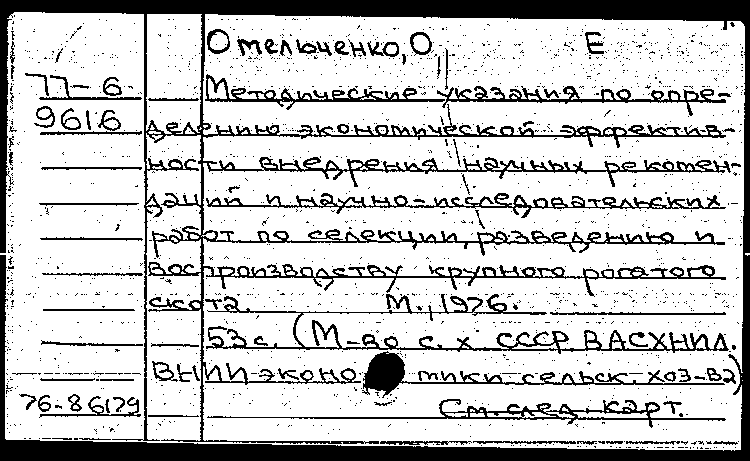 Омельченко, О Е
77-6 Методические указания по опре-
9616 делению экономической эффектив-
ности внедрения научных рекомен-
даций и научно-исследовательских
работ по селекции, разведению и
воспроизводству крупного рогатого
скота. М., 1976.
53 с. (М-во с. х СССР ВАСХНИЛ.
ВНИИ эконо тики сельск. хоз-ва)
76-86179 См. след. карт.